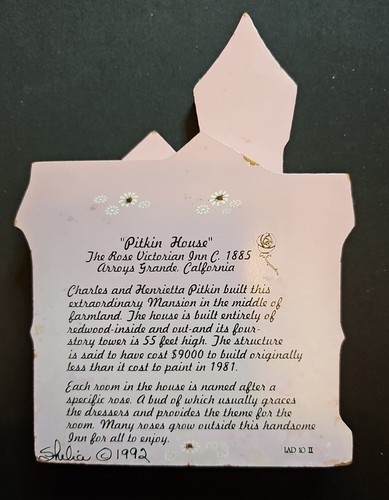 "Pitkin House"
The Rose Victorian Inn C. 1885
Arroys Grande, Calfornia
Charles and Henrietta Pitkin built this
extraordinary Mansion in the middle of
farmland. The house is built entirely of
redwood-inside and out-and its four-
story tower is 55 feet high. The structure
is said to have cost $9000 to build originally
less than it cost to paint in 1981.
Each room in the house is named after a
specific rose. A bud of which usually graces
the dressers and provides the theme for the
room. Many roses grow outside this handsome
Inn for all to enjoy.
Shelia © 1992
LAD 10 II